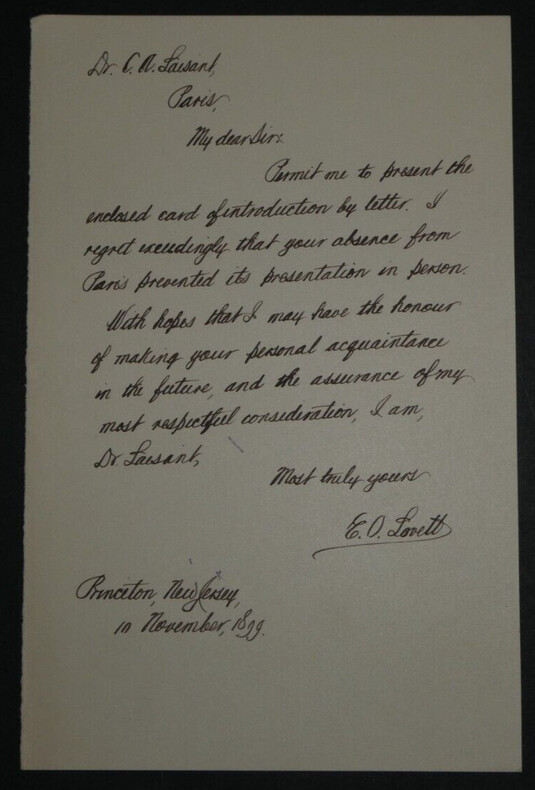 Dr. C. A. Laisant,
Paris,
My dear Sir:
Permit me to present the
enclosed card of introduction by letter. I
regret exceedingly that your absence from
Paris prevented its presentation in person.
With hopes that I may have the honour
of making your personal acquaintance
in the future, and the assurance of my
most respectful consideration, I am,
Dr. Laisant,
Most truly yours
E. O. Lovett
Princeton, New Jersey,
in November, 1899.